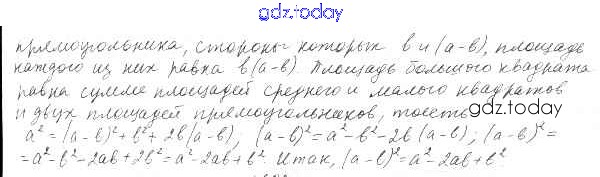 gdz.today
прямоугольника, стороны которых b и (a-b), площадь
каждого из них равна b(a-b). Площадь большого квадрата
равна сумме площадей среднего и малого квадратов
и двух площадей прямоугольников, то есть
gdz.today
a² = (a-b)²+b²+2b(a-b), (a-b)²=a²-b²-2b(a-b); (a-b)²=
=a²-b²-2ab+2b²=a²-2ab+b². Итак, (a-b)²=a²-2ab+b²